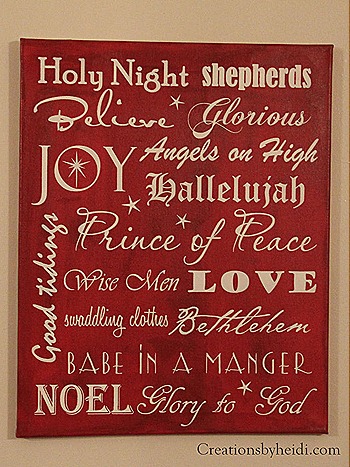 Holy Night shepherds
Believe Glorious
JOY Angels on High
Hallelujah
Prince of Peace
Good tidings
Wise Men LOVE
swaddling clothes Bethlehem
BABE IN A MANGER
NOEL Glory to God
Creationsbyheidi.com